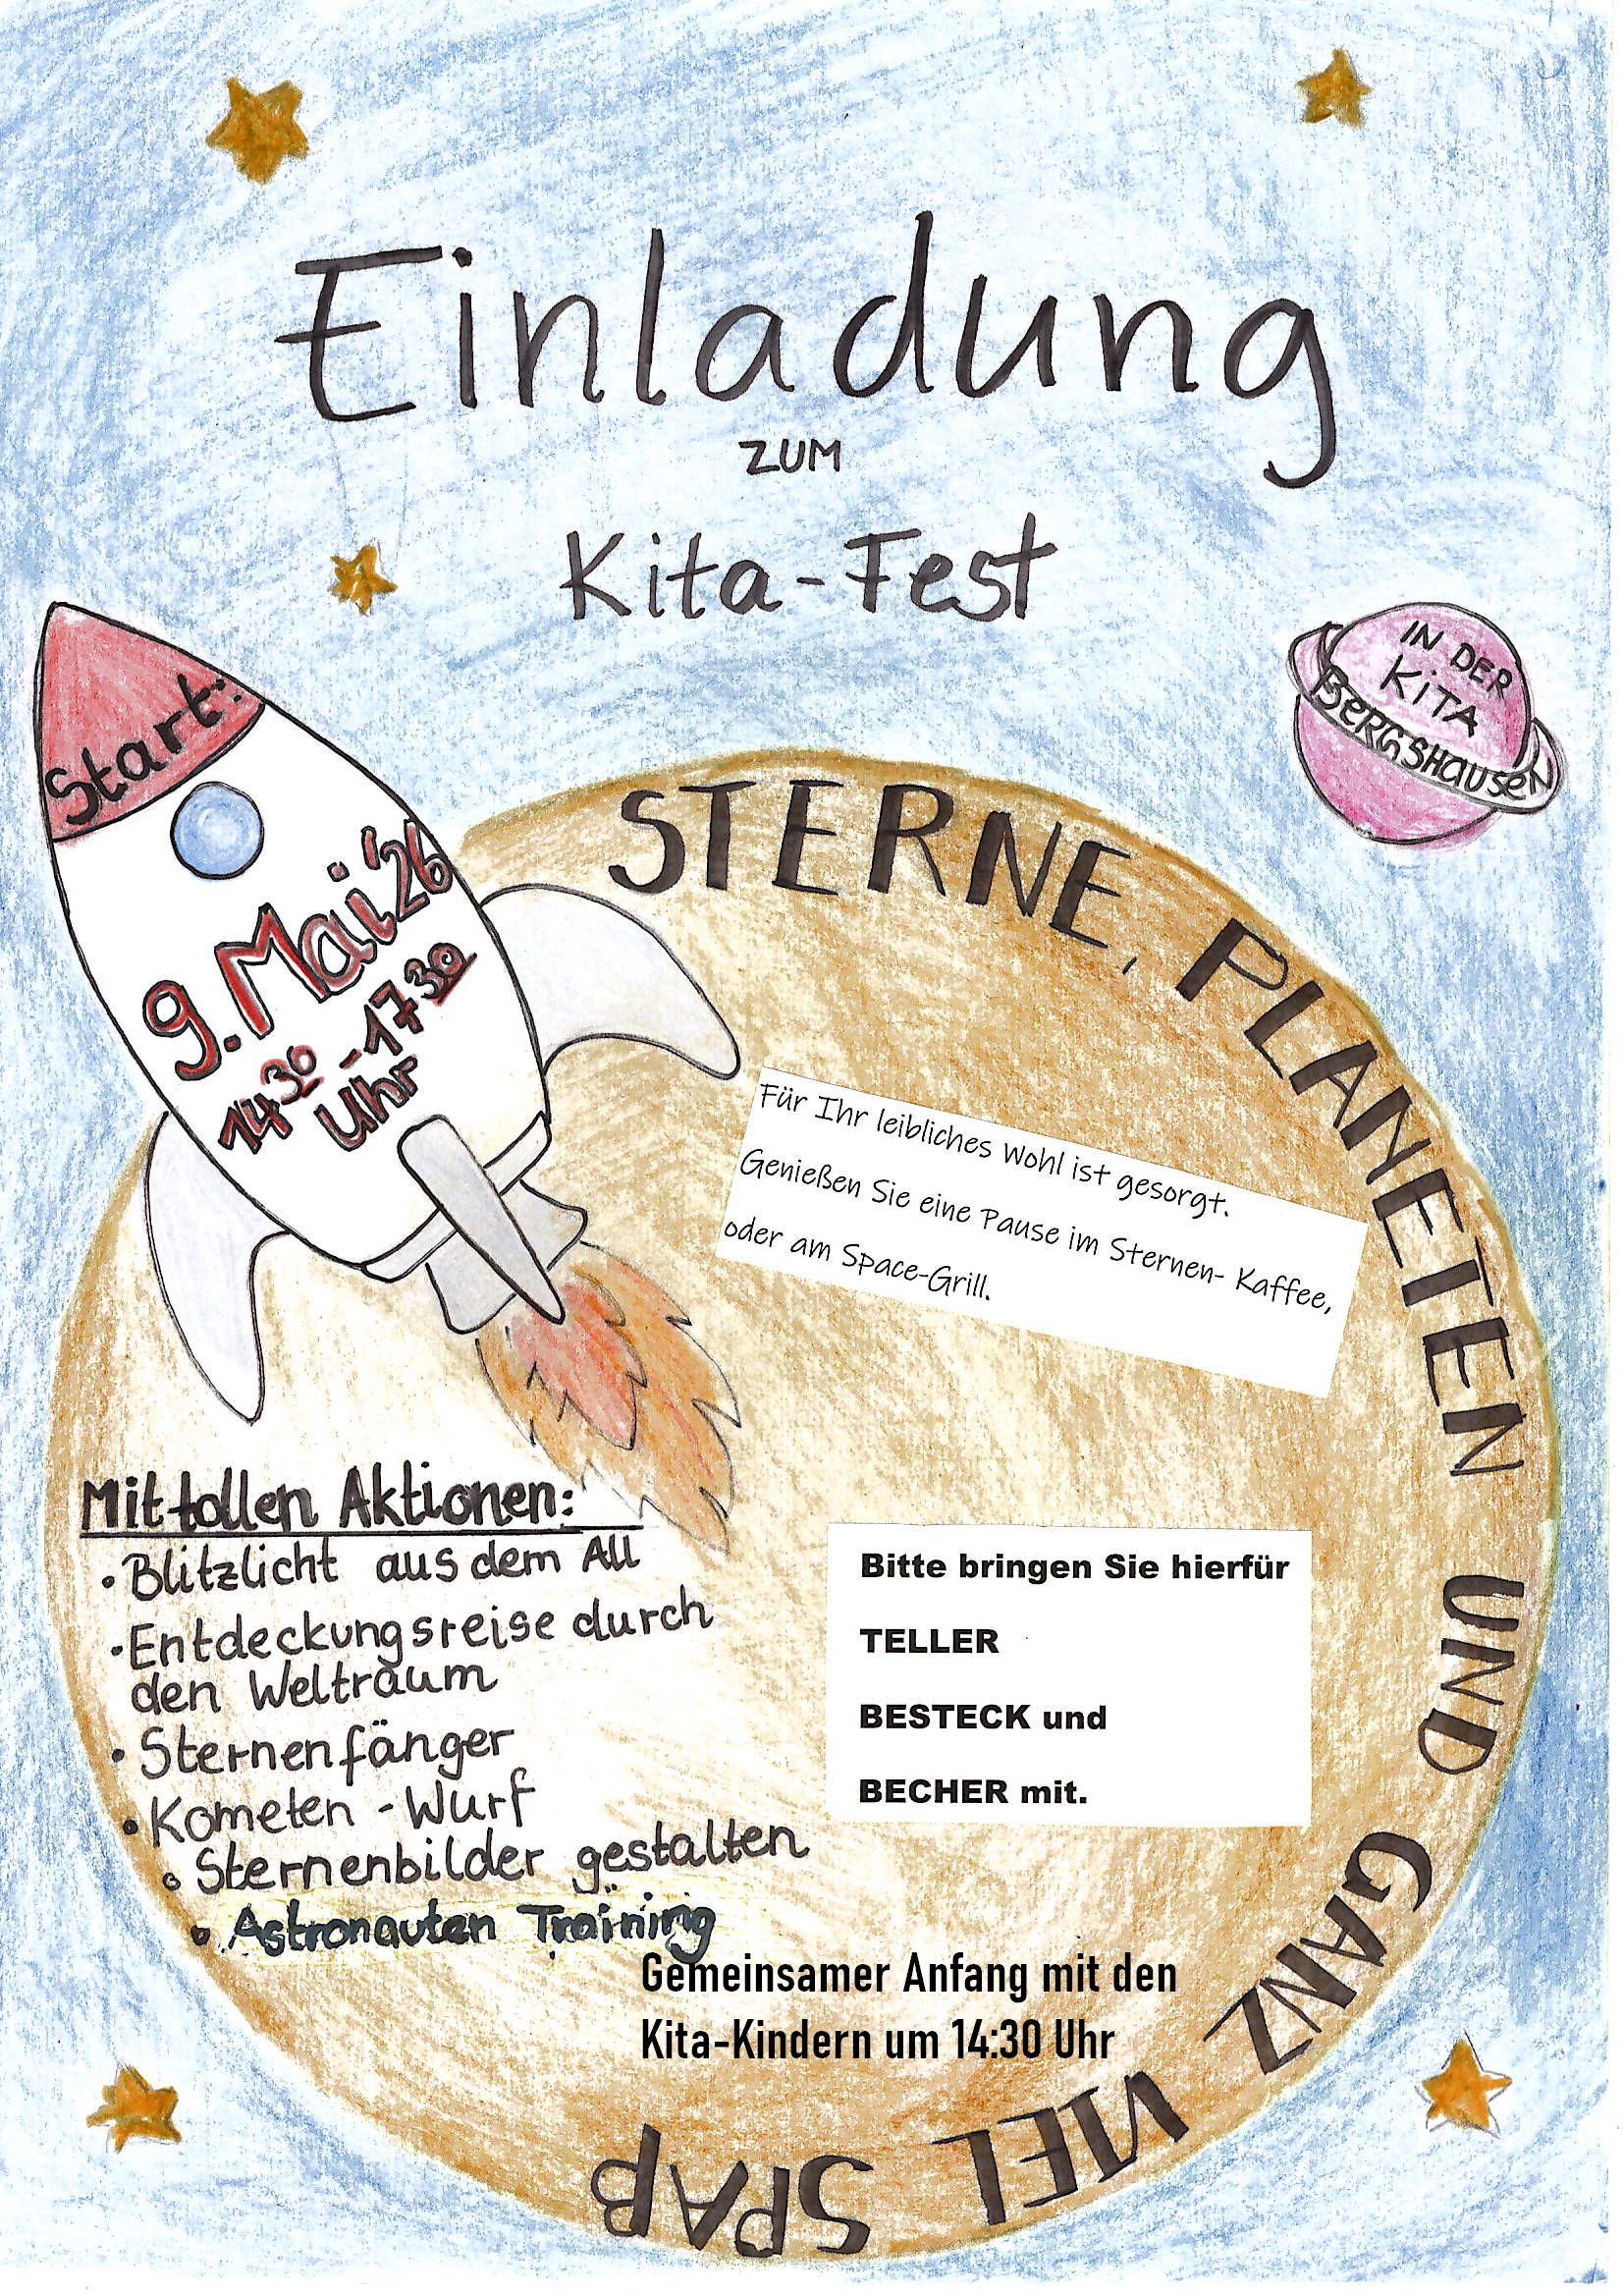 Einladung
ZUM
Kita-Fest
IN DER
KITA
BERGSHAUSEN
Start:
9. Mai '26
14 30 - 17 30
Uhr
STERNE, PLANETEN UND GANZ VIEL SPAß
Für Ihr leibliches Wohl ist gesorgt.
Genießen Sie eine Pause im Sternen- Kaffee,
oder am Space-Grill.
Mit tollen Aktionen:
• Blitzlicht aus dem All
• Entdeckungsreise durch
den Weltraum
• Sternenfänger
• Kometen - Wurf
• Sternenbilder gestalten
• Astronauten Training
Bitte bringen Sie hierfür
TELLER
BESTECK und
BECHER mit.
Gemeinsamer Anfang mit den
Kita-Kindern um 14:30 Uhr